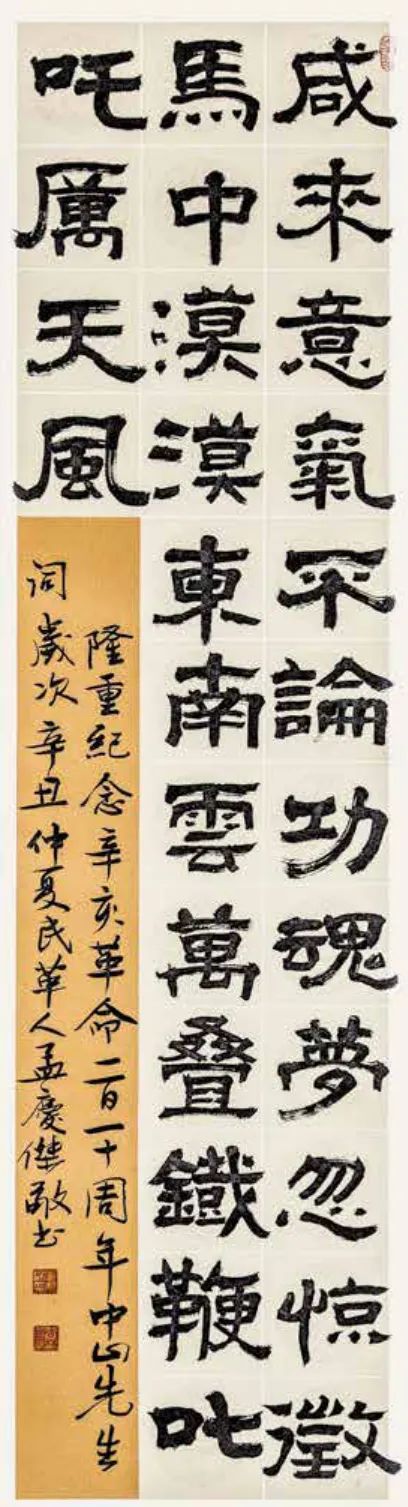 咸來意氣不論功魂夢忽惊徵
馬中漠漠東南雲萬叠鐵鞭叱
吒厲天風
隆重紀念辛亥革命一百一十周年中山先生
词歲次辛丑仲夏民革人孟慶傑敬书